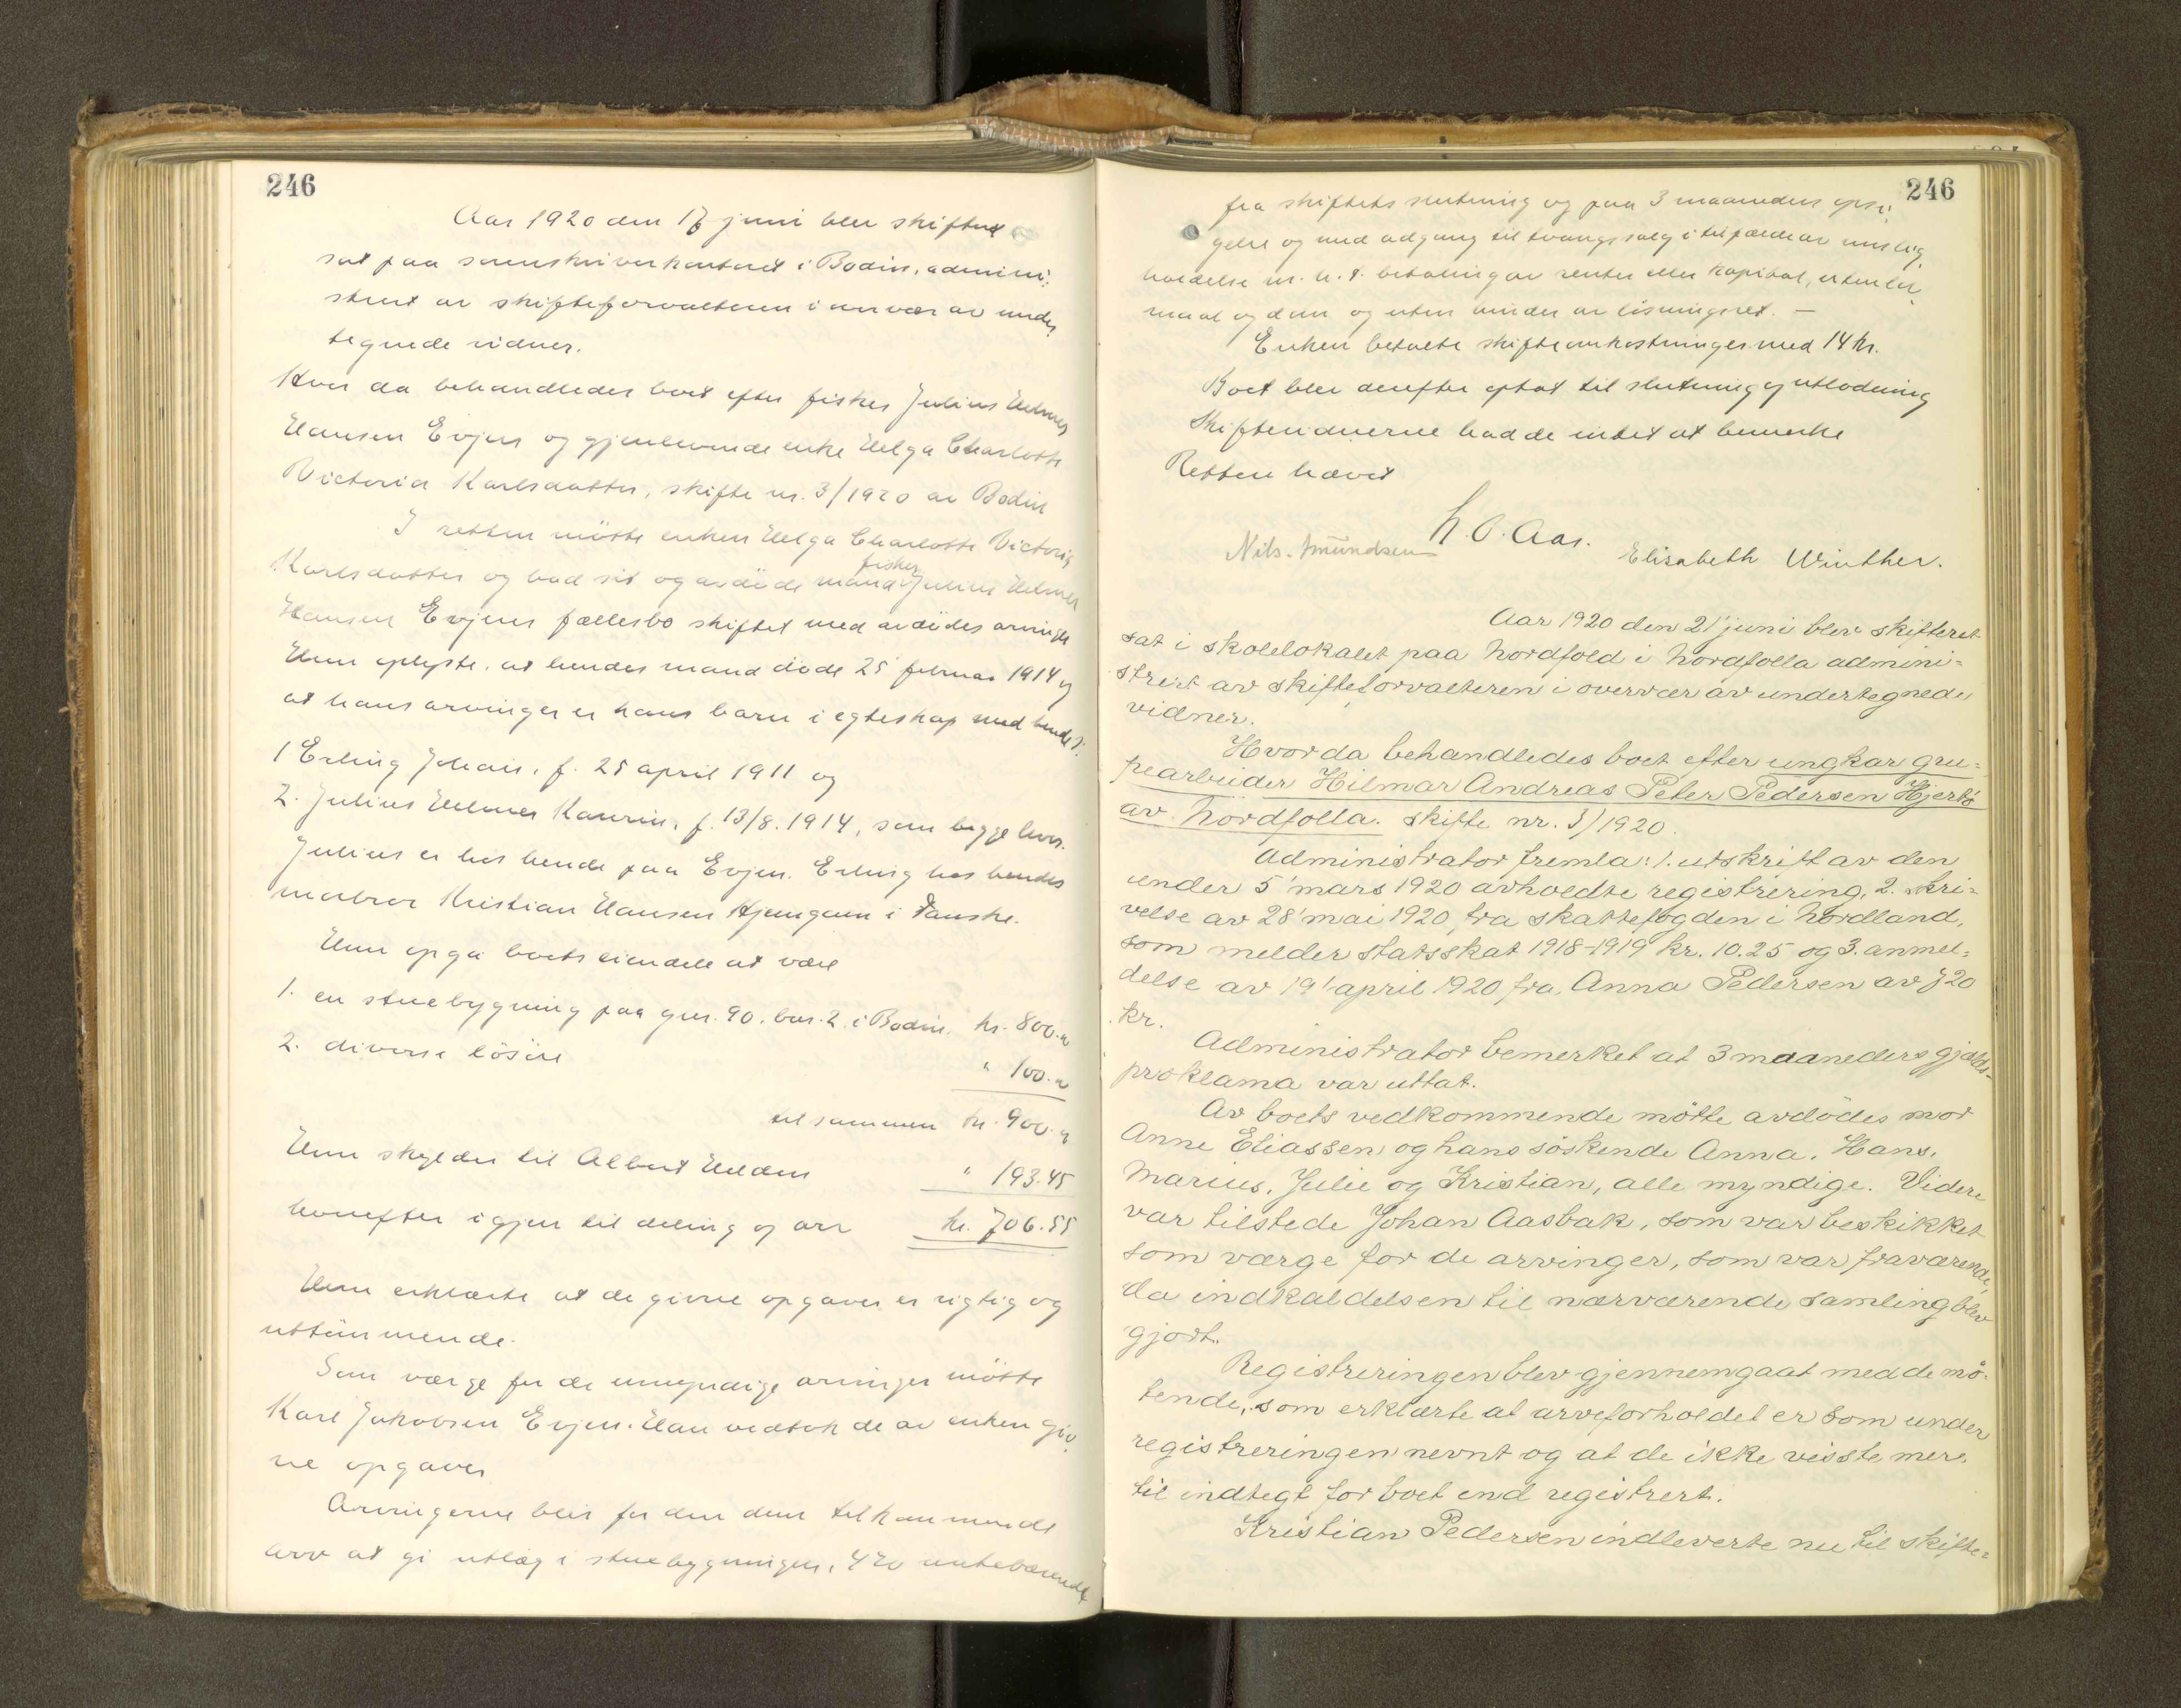 246
Aar 1920 den 17 juni blev skifteret
sat paa sorenskriverkontoret i Bodin, admini-
strert av skifteforvalteren i nærvær av under-
tegnede vidner.
Hvor da behandledes boet efter fisker Julius Helmer
Hansen Evjen og gjenlevende enke Helga Charlotte
Victoria Karlsdatter, skifte nr. 3/1920 av Bodin
I retten mötte enken Helga Charlotte Victoria
Karlsdatter og bad sit og avdöde mand fisker Julius Helmer
Hansen Evjens fællesbo skiftet med avdödes arvinger
Hun oplyste at hendes mand döde 25 februar 1914 og
at hans arvinger er hans barn i egteskap med hende:
1 Erling Johan, f. 25 april 1911 og
2. Julius Helmer Kaurin, f. 13/8. 1914, som begge lever.
Julius er hos hende paa Evjen. Erling hos hendes
morbror Kristian Hansen Hjemgam i Fauske.
Hun opga boets eiendele at være
1. en stuebygning paa gnr. 90. bnr. 2 i Bodin. kr. 800.-
2. diverse lösöre " 100.-
tilsammen kr. 900.-
Hun skylder til Albert " 193.45
hvorefter igjen til deling og arv kr. 706.55
Hun erklærte at de givne opgaver er rigtig og
uttömmende.
Som værge for de umyndige arvinger mötte
Karl Jakobsen Evjen. Han vedtok de av enken giv-
ne opgaver
Arvingerne blir for den dem tilkommende
arv at gi utlæg i stuebygningen, 4% rentebærende
246
fra skiftets slutning og paa 3 maaneders opsi-
gelse og med adgang til tvangssalg i tilfælde av mislig-
holdelse m. h. t. betaling av renter eller kapital, uten lov-
maal og dom og uten hinder av lösningsret. —
Enken betalte skifteomkostninger med 14 kr.
Boet blev derefter optat til slutning og utlodning
Skiftevidnerne hadde intet at bemerke
Retten hævet
H. O. Aas.
Nils. Amundsen Elisabeth Winther.
Aar 1920 den 21' juni blev skifteret
sat i skolelokalet paa Nordfold i Nordfolla admini=
strert av skifteforvalteren i overvær av undertegnede
vidner.
Hvor da behandledes boet efter ungkar gru=
pearbeider Hilmar Andreas Peter Pedersen Hjertö
av Nordfolla. skifte nr. 3/1920.
Administrator fremla: 1. utskrift av den
under 5' mars 1920 avholdte registrering, 2. skri=
velse av 28' mai 1920, fra skattefogden i Nordland,
som melder statsskat 1918-1919 kr. 10.25 og 3. anmel=
delse av 19' april 1920 fra Anna Pedersen av 720
kr.
Administrator bemerket at 3 maaneders gjælds-
proklama var uttat.
Av boets vedkommende mötte avdödes mor
Anne Eliassen og hans söskende Anna, Hans,
Marius, Julie og Kristian, alle myndige. Videre
var tilstede Johan Aasbak, som var beskikket
som værge for de arvinger, som var fraværende,
da indkaldelsen til nærværende samling blev
gjort.
Registreringen blev gjennemgaat med de mö-
tende, som erklærte at arveforholdet er som under
registreringen nevnt og at de ikke visste mere
til indtegt for boet end registrert.
Kristian Pedersen indleverte nu til skifte=